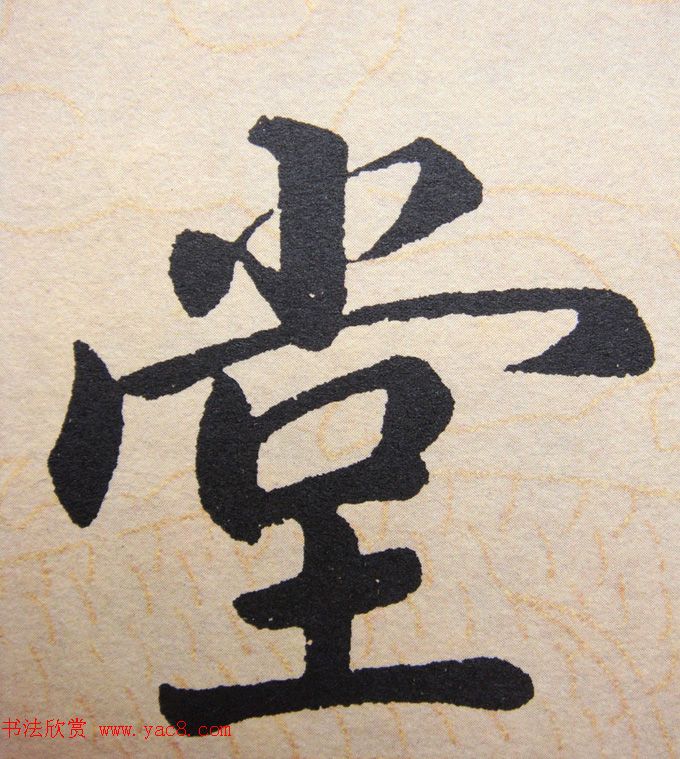 堂
书法欣赏 www.yac8.com